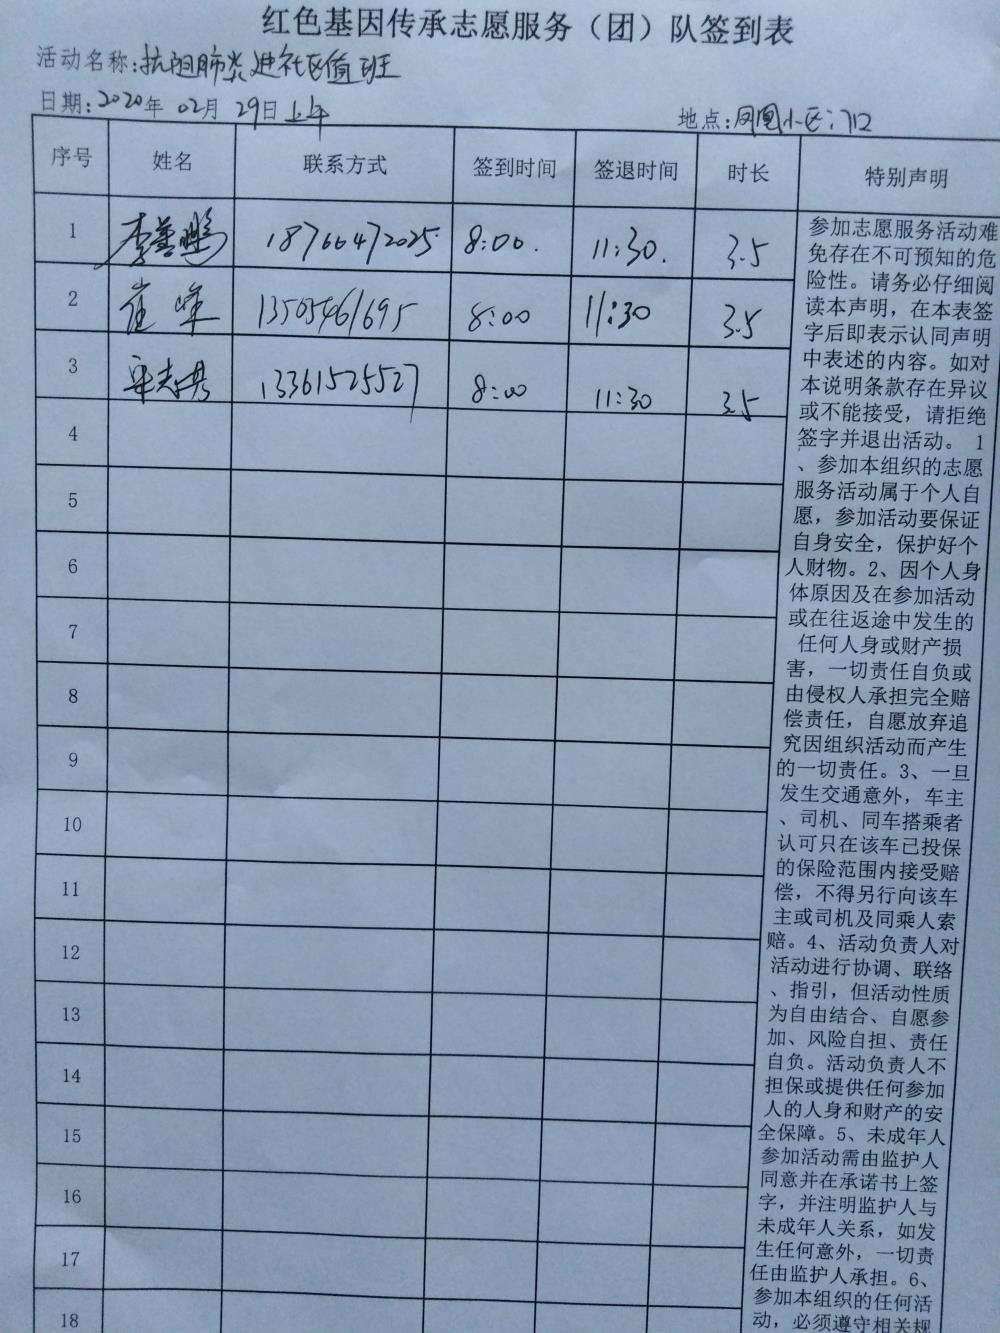 红色基因传承志愿服务（团）队签到表
活动名称：抗阻肺炎进社区值班
日期：2020年 02月 29日上午 地点：凤凰小区门口
序号 姓名 联系方式 签到时间 签退时间 时长 特别声明
1 李善鹏 18766472025 8:00. 11:30. 3.5
2 崔峰 13505461695 8:00 11:30 3.5
3 13361525527 8:00 11:30 3.5
4
5
6
7
8
9
10
11
12
13
14
15
16
17
18
参加志愿服务活动难
免存在不可预知的危
险性。请务必仔细阅
读本声明，在本表签
字后即表示认同声明
中表述的内容。如对
本说明条款存在异议
或不能接受，请拒绝
签字并退出活动。 1
、参加本组织的志愿
服务活动属于个人自
愿，参加活动要保证
自身安全，保护好个
人财物。2、因个人身
体原因及在参加活动
或在往返途中发生的
任何人身或财产损
害，一切责任自负或
由侵权人承担完全赔
偿责任，自愿放弃追
究因组织活动而产生
的一切责任。3、一旦
发生交通意外，车主
、司机、同车搭乘者
认可只在该车已投保
的保险范围内接受赔
偿，不得另行向该车
主或司机及同乘人索
赔。4、活动负责人对
活动进行协调、联络
、指引，但活动性质
为自由结合、自愿参
加、风险自担、责任
自负。活动负责人不
担保或提供任何参加
人的人身和财产的安
全保障。5、未成年人
参加活动需由监护人
同意并在承诺书上签
字，并注明监护人与
未成年人关系，如发
生任何意外，一切责
任由监护人承担。6、
参加本组织的任何活
动，必须遵守相关规